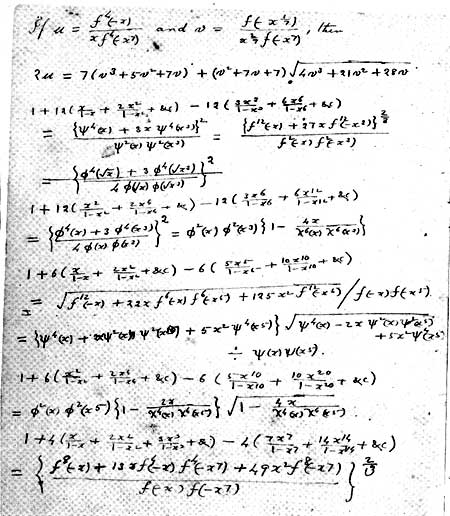 If u = f⁴(-x) / x f⁴(-x⁷) and v = f(-x^{1/7}) / x^{2/7} f(-x⁷), then
2u = 7(v³+5v²+7v) + (v²+7v+7)√(4v³+21v²+28v)
1+12(x/(1-x) + 2x²/(1-x²) + &c) - 12(3x³/(1-x³) + 6x⁶/(1-x⁶) + &c)
= {ψ⁴(x) + 3x ψ⁴(x³)}² / ψ²(x) ψ²(x³) = {f¹²(-x) + 27x f¹²(-x³)}^{2/3} / f²(-x) f²(-x³)
= {(φ⁴(√x) + 3φ⁴(√x³)) / 4φ(√x) φ(√x³)}²
1+12(x²/(1-x²) + 2x⁴/(1-x⁴) + &c) - 12(3x⁶/(1-x⁶) + 6x¹²/(1-x¹²) + &c)
= {(φ⁴(x) + 3φ⁴(x³)) / 4φ(x) φ(x³)}² = φ²(x) φ²(x³) {1 - 4x/χ⁶(x)χ⁶(x³)}
1+6(x/(1-x) + 2x²/(1-x²) + &c) - 6(5x⁵/(1-x⁵) + 10x¹⁰/(1-x¹⁰) + &c)
= √(f¹²(-x) + 22x f⁶(-x) f⁶(-x⁵) + 125x² f¹²(-x⁵)) / f(-x) f(-x⁵).
= {ψ⁴(x) + 2xψ²(x) ψ²(x⁵) + 5x²ψ⁴(x⁵)} √(ψ⁴(x) - 2x ψ²(x)ψ²(x⁵) + 5x²ψ⁴(x⁵))
÷ ψ(x)ψ(x⁵).
1+6(x²/(1-x²) + 2x⁴/(1-x⁴) + &c) - 6(5x¹⁰/(1-x¹⁰) + 10x²⁰/(1-x²⁰) + &c)
= φ²(x) φ²(x⁵) {1 - 2x/χ²(x)χ²(x⁵)} √(1 - 4x/χ²(x)χ²(x⁵)).
1+4(x/(1-x) + 2x²/(1-x²) + 3x³/(1-x³) + &c) - 4(7x⁷/(1-x⁷) + 14x¹⁴/(1-x¹⁴) + &c)
= {(f⁸(-x) + 13x f⁴(-x) f⁴(-x⁷) + 49x² f⁸(-x⁷)) / f(-x) f(-x⁷)}^{2/3}